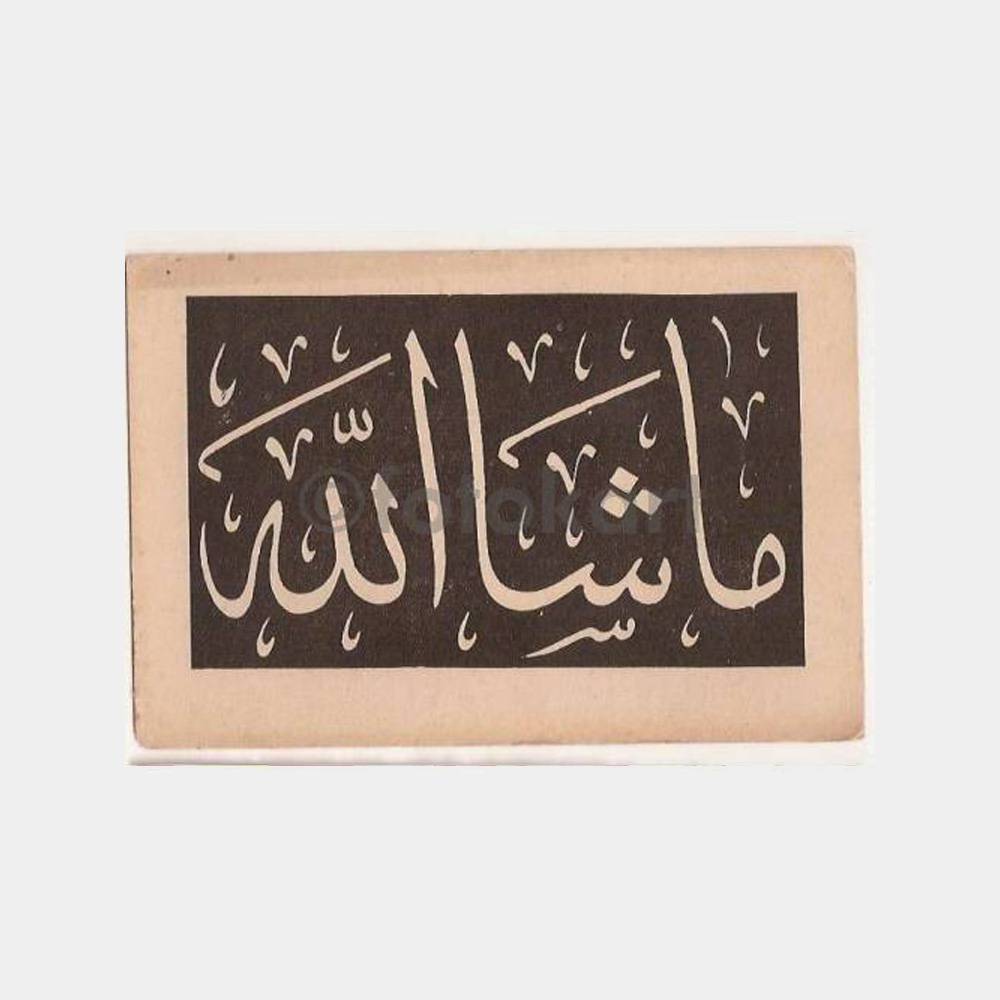 ما شا الله
©fotokart